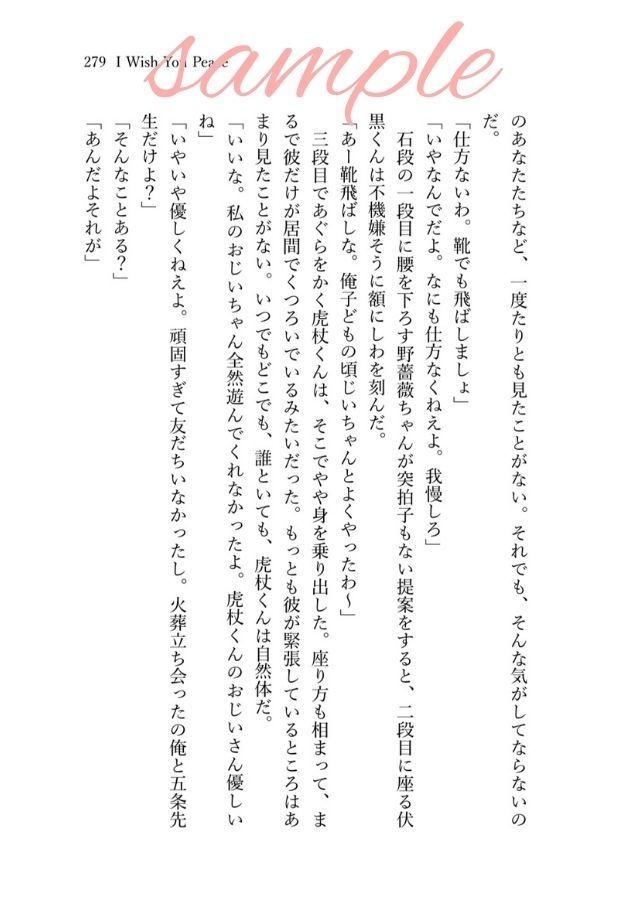 sample
279 I Wish You Peace
のあなたたちなど、一度たりとも見たことがない。それでも、そんな気がしてならないの
だ。
「仕方ないわ。靴でも飛ばしましょ」
「いやなんでだよ。なにも仕方なくねえよ。我慢しろ」
石段の一段目に腰を下ろす野薔薇ちゃんが突拍子もない提案をすると、二段目に座る伏
黒くんは不機嫌そうに額にしわを刻んだ。
「あー靴飛ばしな。俺子どもの頃じいちゃんとよくやったわ〜」
三段目であぐらをかく虎杖くんは、そこでやや身を乗り出した。座り方も相まって、ま
るで彼だけが居間でくつろいでいるみたいだった。もっとも彼が緊張しているところはあ
まり見たことがない。いつでもどこでも、誰といても、虎杖くんは自然体だ。
「いいな。私のおじいちゃん全然遊んでくれなかったよ。虎杖くんのおじいさん優しい
ね」
「いやいや優しくねえよ。頑固すぎて友だちいなかったし。火葬立ち会ったの俺と五条先
生だけよ？」
「そんなことある？」
「あんだよそれが」